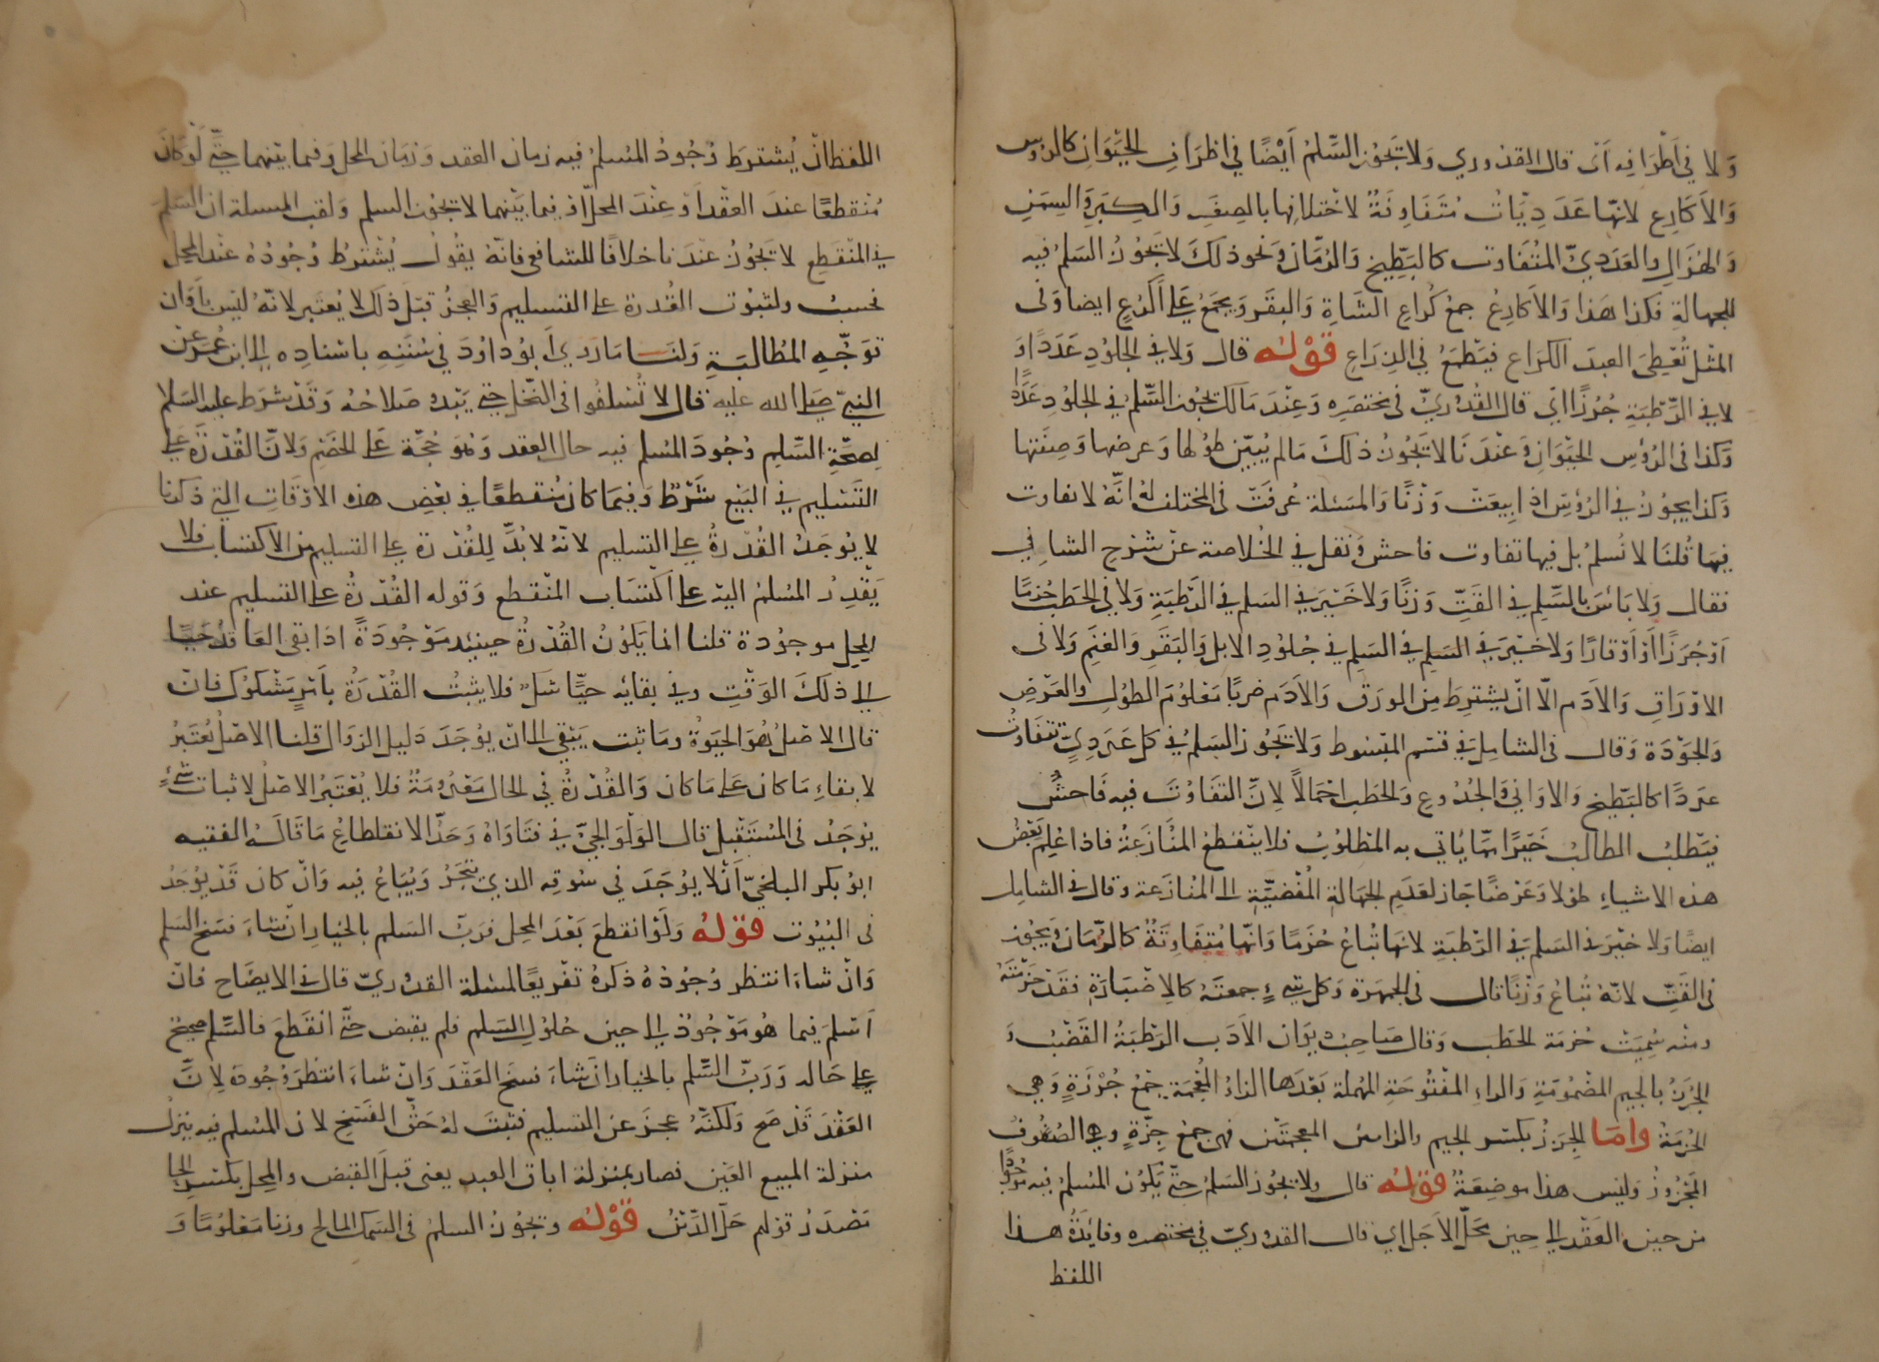 ولا في أطرافه أى قال القدوري ولا تجوز السلم أيضًا في اطراف الحيوان كالرؤس
والأكارع لانها عدديات متفاوتة لاختلافها بالصغر والكبر والسمن
والهزال والعددي المتفاوت كالبطيخ والرمان ونحو ذلك لا يجوز السلم فيه
للجهالة فكذا هذا والأكارع جمع كراع الشاة والبقر ويجمع على أكرع ايضا وفى
المثل تعطى العبد الكراع فيطمع في الذراع قوله قال ولا في الجلود عددًا و
لا في الرطبة جرزًا اي قال القدوري في مختصره وعند مالك يجوز السلم في الجلود عددا
وكذا في الرؤس الحيوان وعندنا لا يجوز ذلك مالم يبين طولها وعرضها وصفتها
وكذا يجوز في الرؤس اذا بيعت وزنًا والمسئلة عرفت في المختلف له انه لا تفاوت
فيها قلنا لا نسلم بل فيها تفاوت فاحش ونقل في الخلاصة عن شرح الشافي
فقال ولا بأس بالسلم في القت وزنًا ولا خير في السلم في الرطبة ولا في الحطب حزمًا
او جرزًا او أوقارًا ولا خير في السلم في السلم في جلود الابل والبقر والغنم ولا في
الاوراق والأدم الا ان يشترط من الورق والأدم ضربًا معلوم الطول والعرض
والجودة وقال في الشامل في قسم المبسوط ولا يجوز السلم في كل عددي تتفاوت
عددًا كالبطيخ والاواني والجذوع والحطب احمالاً لان التفاوت فيه فاحش
فيطلب الطالب خيرًا مما يأتي به المطلوب فلا ينقطع المنازعة فاذا علم بعض
هذه الاشياء طولا وعرضًا جاز لعدم الجهالة المفضية الى المنازعة وقال في الشامل
ايضًا ولا خير في السلم في الرطبة لانها تباع حزمًا وانها متفاوتة كالرمان ويجوز
في القت لانه تباع وزنًا قال في الجمهرة وكل شيء جمعته كالاضبارة فقد حزمته
ومنه سميت حزمة الحطب وقال صاحب ديوان الأدب الرطبة القضب و
الجرز بالجيم المضمومة والراء المفتوحة المهملة بعدها الزاء المعجمة جمع جرزة وهي
الحزمة واما الجزز بكسر الجيم والزايين المعجمتين فهي جمع جزة وهي الصوف
المجزوز وليس هذا موضعه قوله قال ولا يجوز السلم حتى يكون المسلم فيه موجودًا
من حين العقد الي حين محل الأجل اي قال القدوري في مختصره وفائدة هذا
اللفظ
اللفظ ان يشترط وجود المسلم فيه زمان العقد وزمان المحل وفيما بينهما حتى لو كان
منقطعًا عند العقد او عند المحل او فيما بينهما لا يجوز السلم ولقب المسئلة ان السلم
في المنقطع لا يجوز عندنا خلافًا للشافعي فانه يقول يشترط وجوده عند المحل
فحسب ولثبوت القدرة على التسليم والعجز قبل ذلك لا يعتبر لانه ليس باوان
توجه المطالبة ولنا ما روي أبو داود في سننه باسناده الى ابن عمر عن
النبي صلى الله عليه قال لا تسلفوا في النخل حتى يبدو صلاحه وقد شرط عليه السلام
لصحة السلم وجود المسلم فيه حال العقد وهو حجة على الخصم ولان القدرة على
التسليم في البيع شرط وفيما كان منقطعًا في بعض هذه الاوقات التي ذكرنا
لا يوجد القدرة على التسليم لانه لا بد للقدرة على التسليم من الاكتساب فلا
يقدر المسلم اليه على اكتساب المنقطع وقوله القدرة على التسليم عند
المحل موجودة قلنا انما يكون القدرة حينئذ موجودة اذا بقى العاقد حيًا
الي ذلك الوقت وفي بقائه حيًا شك فلا يثبت القدرة بأمر مشكوك فان
قال الاصل هو الحيوة وما ثبت يبقى الى ان يوجد دليل الزوال قلنا الاصل يعتبر
لابقاء ما كان على ما كان والقدرة في الحال معدومة فلا يعتبر الاصل لاثبات شيء
يوجد في المستقبل قال الولوالجي في فتاواه وحد الانقطاع ما قاله الفقيه
ابو بكر البلخي أن لا يوجد في سوقه الذي يتجر ويباع فيه وان كان قد يوجد
في البيوت قوله ولو انقطع بعد المحل فرب السلم بالخيار ان شاء فسخ السلم
وان شاء انتظر وجوده ذكره تفريعًا لمسئلة القدوري قال في الايضاح فان
أسلم فيما هو موجود الى حين حلول السلم فلم يقبض حتى انقطع فالسلم صحيح
على حاله ورب السلم بالخيار ان شاء فسخ العقد وان شاء انتظر وجوده لان
العقد قد صح ولكنه عجز عن التسليم فثبت له حق الفسخ لان المسلم فيه ينزل
منزلة المبيع العين فصار بمنزلة اباق العبد يعنى قبل القبض والمحل بكسر الحا
مصدر قولهم حل الدين قوله ويجوز السلم في السمك المالح وزنا معلومًا و